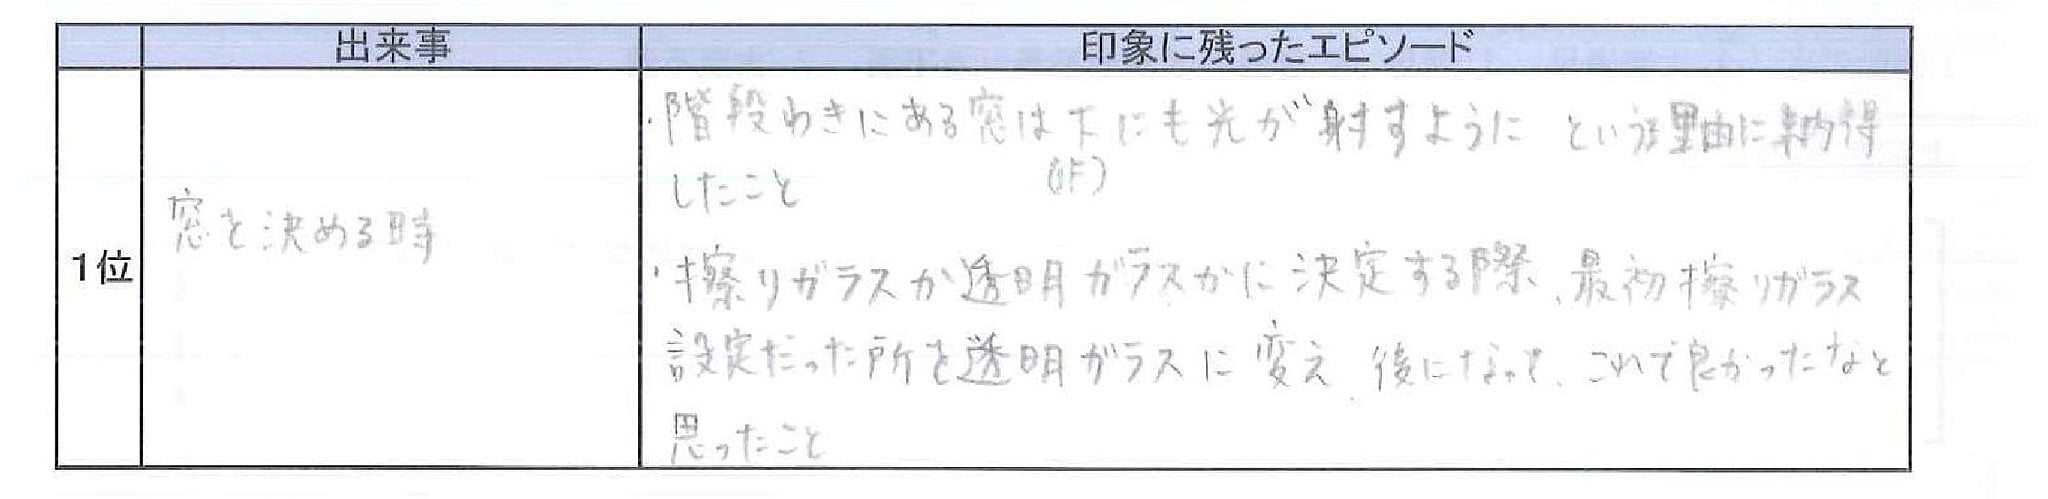 出来事
印象に残ったエピソード
1位
窓を決める時
・階段わきにある窓は下にも光が射すように という理由に納得
(1F)
したこと
・擦りガラスか透明ガラスかに決定する際、最初擦りガラス
設定だった所を透明ガラスに変え 後になって、これで良かったなと
思ったこと